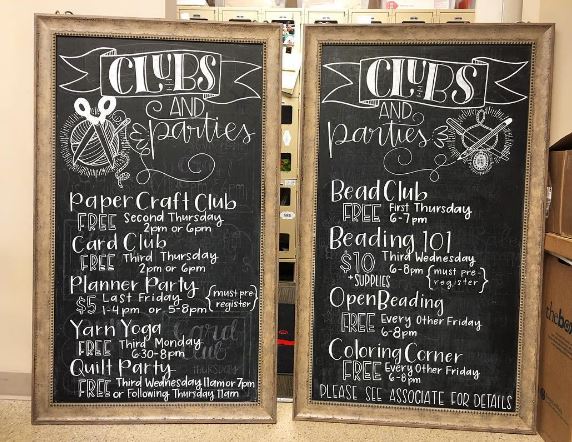 CLUBS
AND
parties
Paper Craft Club
FREE Second Thursday
2pm or 6pm
Card Club
FREE Third Thursday
2pm or 6pm
Planner Party
$5 Last Friday
1-4 pm or 5-8pm
{must pre register}
Yarn Yoga
FREE Third Monday
6:30-8pm
Quilt Party
FREE Third Wednesday 11am or 7pm
or Following Thursday 11am
CLUBS
AND
parties
Bead Club
FREE First Thursday
6-7pm
Beading 101
$10 Third Wednesday
+SUPPLIES 6-8pm
{must pre-register}
Open Beading
FREE Every Other Friday
6-8pm
Coloring Corner
FREE Every Other Friday
6-8pm
PLEASE SEE ASSOCIATE FOR DETAILS